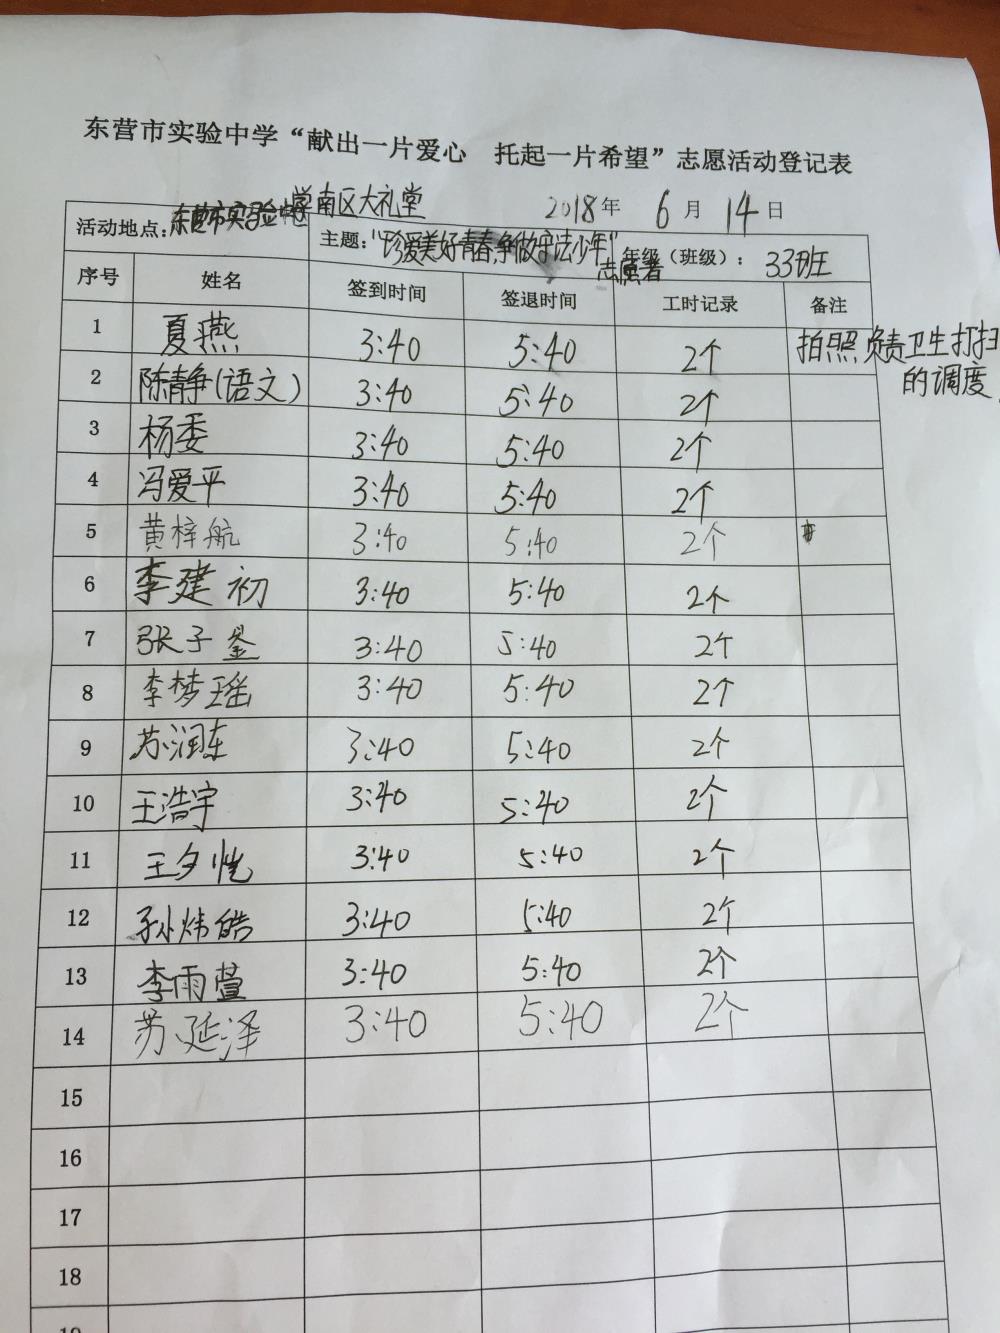 东营市实验中学“献出一片爱心 托起一片希望”志愿活动登记表
2018年 6月 14日
活动地点：东营市实验中学南区大礼堂 主题：“珍爱美好青春，争做守法少年”志愿者 年级（班级）：33班
序号 姓名 签到时间 签退时间 工时记录 备注
1 夏燕 3:40 5:40 2个 拍照 负责卫生打扫的调度
2 陈静(语文) 3:40 5:40 2个
3 杨委 3:40 5:40 2个
4 冯爱平 3:40 5:40 2个
5 黄梓航 3:40 5:40 2个
6 李建初 3:40 5:40 2个
7 张子鉴 3:40 5:40 2个
8 李梦瑶 3:40 5:40 2个
9 苏润东 3:40 5:40 2个
10 王浩宇 3:40 5:40 2个
11 王夕恺 3:40 5:40 2个
12 孙炜皓 3:40 5:40 2个
13 李雨萱 3:40 5:40 2个
14 苏延泽 3:40 5:40 2个
15
16
17
18
19